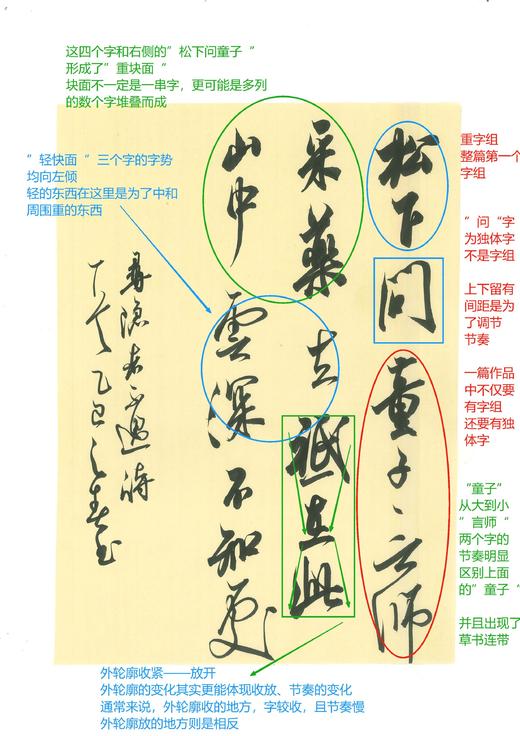 这四个字和右侧的"松下问童子"
形成了"重块面"
块面不一定是一串字，更可能是多列
的数个字堆叠而成
"轻快面"三个字的字势
均向左倾
轻的东西在这里是为了中和
周围重的东西
重字组
整篇第一个
字组
"问"字
为独体字
不是字组
上下留有
间距是为
了调节
节奏
一篇作品
中不仅要
有字组
还要有独
体字
"童子"
从大到小
"言师"
两个字的
节奏明显
区别上面
的"童子"
并且出现了
草书连带
松下問童子言師
采藥去祇在此
山中雲深不知處
尋隱者不遇詩
乙巳之春
外轮廓收紧——放开
外轮廓的变化其实更能体现收放、节奏的变化
通常来说，外轮廓收的地方，字较收，且节奏慢
外轮廓放的地方则是相反